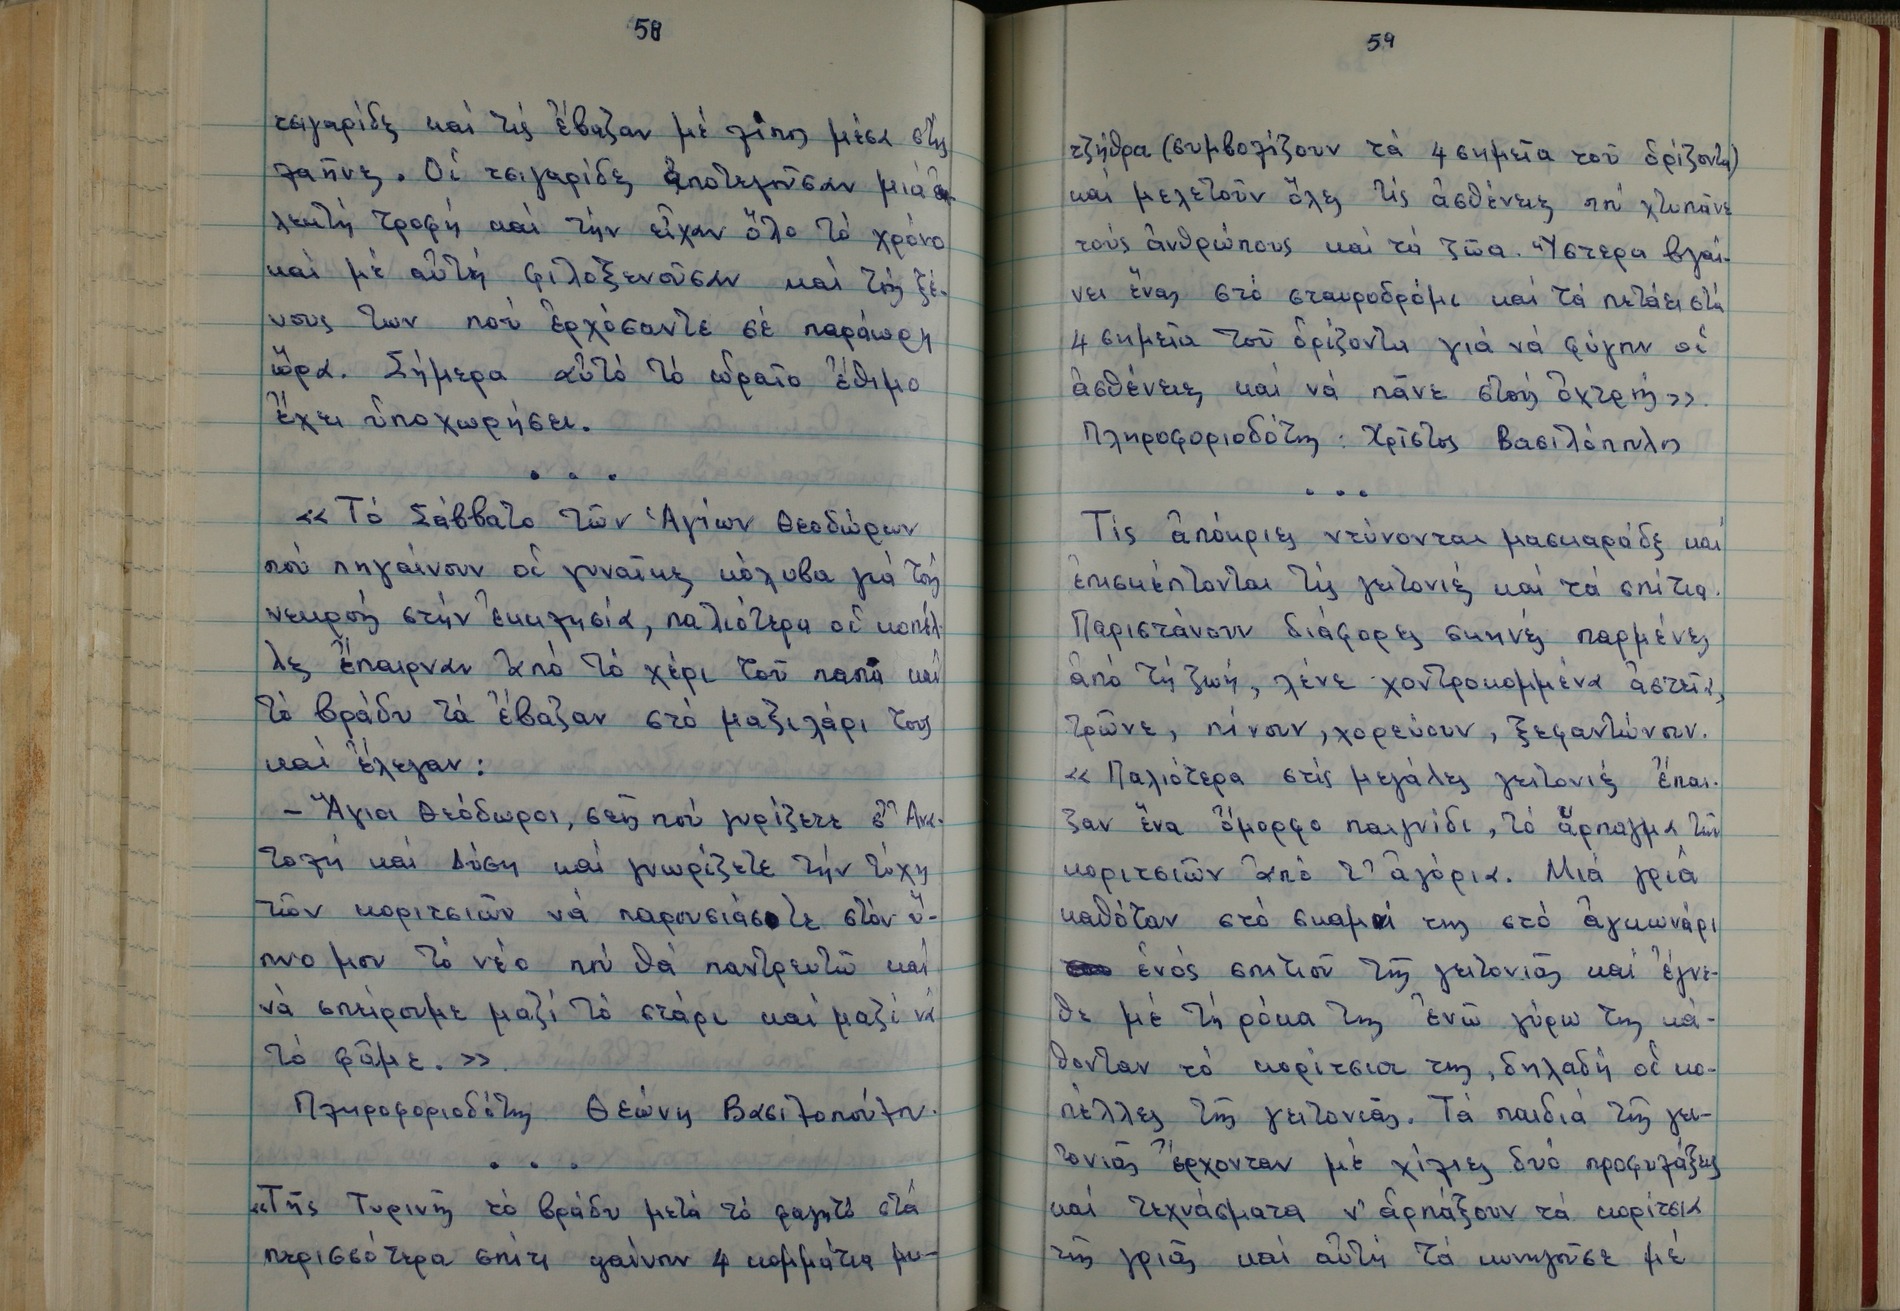 58
τσιγαρίδες καί τίς ἔβαζαν μέ λίπος μέσα στίς
λαῆνες. Οἱ τσιγαρίδες ἀποτελοῦσαν μιά ἐκ-
λεκτή τροφή καί τήν εἶχαν ὅλο τό χρόνο
καί μέ αὐτή φιλοξενοῦσαν καί τούς ξέ-
νους των πού ἐρχόσαντε σέ παράωρη
ὥρα. Σήμερα αὐτό τό ὡραῖο ἔθιμο
ἔχει ὑποχωρήσει.
. . .
«Τό Σάββατο τῶν Ἁγίων Θεοδώρων
πού πηγαίνουν οἱ γυναῖκες κόλυβα γιά τούς
νεκρούς στήν ἐκκλησία, παλιότερα οἱ κοπέλ-
λες ἔπαιρναν ἀπό τό χέρι τοῦ παπᾶ καί
τό βράδυ τά ἔβαζαν στό μαξιλάρι τους
καί ἔλεγαν:
– Ἅγιοι Θεόδωροι, σεῖς πού γυρίζετε σ' Ἀνα-
τολή καί Δύση καί γνωρίζετε τήν τύχη
τῶν κοριτσιῶν νά παρουσιάσετε στόν ὕ-
πνο μου τό νέο πού θά παντρευτῶ καί
νά σπείρουμε μαζί τό στάρι καί μαζί νά
τό φᾶμε.»
Πληροφοριοδότης Θεώνη Βασιλοπούλου.
. . .
«Τῆς Τυρινῆς τό βράδυ μετά τό φαγητό στά
περισσότερα σπίτι φαίνουν 4 κομμάτια μυ-
59
τζήθρα (συμβολίζουν τά 4 σημεῖα τοῦ ὁρίζοντα)
καί μελετοῦν ὅλες τίς ἀσθένειες πού χτυπᾶνε
τούς ἀνθρώπους καί τά ζῶα. Ὕστερα βγαί-
νει ἕνας στό σταυροδρόμι καί τά πετάει στά
4 σημεῖα τοῦ ὁρίζοντα γιά νά φύγουν οἱ
ἀσθένειες καί νά πᾶνε στούς ὀχτρούς».
Πληροφοριοδότης: Χρῖστος Βασιλόπουλος
. . .
Τίς ἀπόκριες ντύνονται μασκαράδες καί
ἐπισκέπτονται τίς γειτονιές καί τά σπίτια.
Παριστάνουν διάφορες σκηνές παρμένες
ἀπό τή ζωή, λένε χοντροκομμένα ἀστεῖα,
τρῶνε, πίνουν, χορεύουν, ξεφαντώνουν.
« Παλιότερα στίς μεγάλες γειτονιές ἔπαι-
ζαν ἕνα ὄμορφο παιγνίδι, τό ἅρπαγμα τῶν
κοριτσιῶν ἀπό τ' ἀγόρια. Μιά γριά
καθόταν στό σκαμνί της στό ἀγκωνάρι
ἑνός σπιτιοῦ τῆς γειτονιᾶς καί ἔγνε-
θε μέ τή ρόκα της ἐνῶ γύρω της κά-
θονταν τό κορίτσια της, δηλαδή οἱ κο-
πέλλες τῆς γειτονιᾶς. Τά παιδιά τῆς γει-
τονιᾶς ἔρχονταν μέ χίλιες δυό προφυλάξεις
καί τεχνάσματα ν' ἁρπάξουν τά κορίτσια
τῆς γριᾶς καί αὐτή τά κυνηγοῦσε μέ